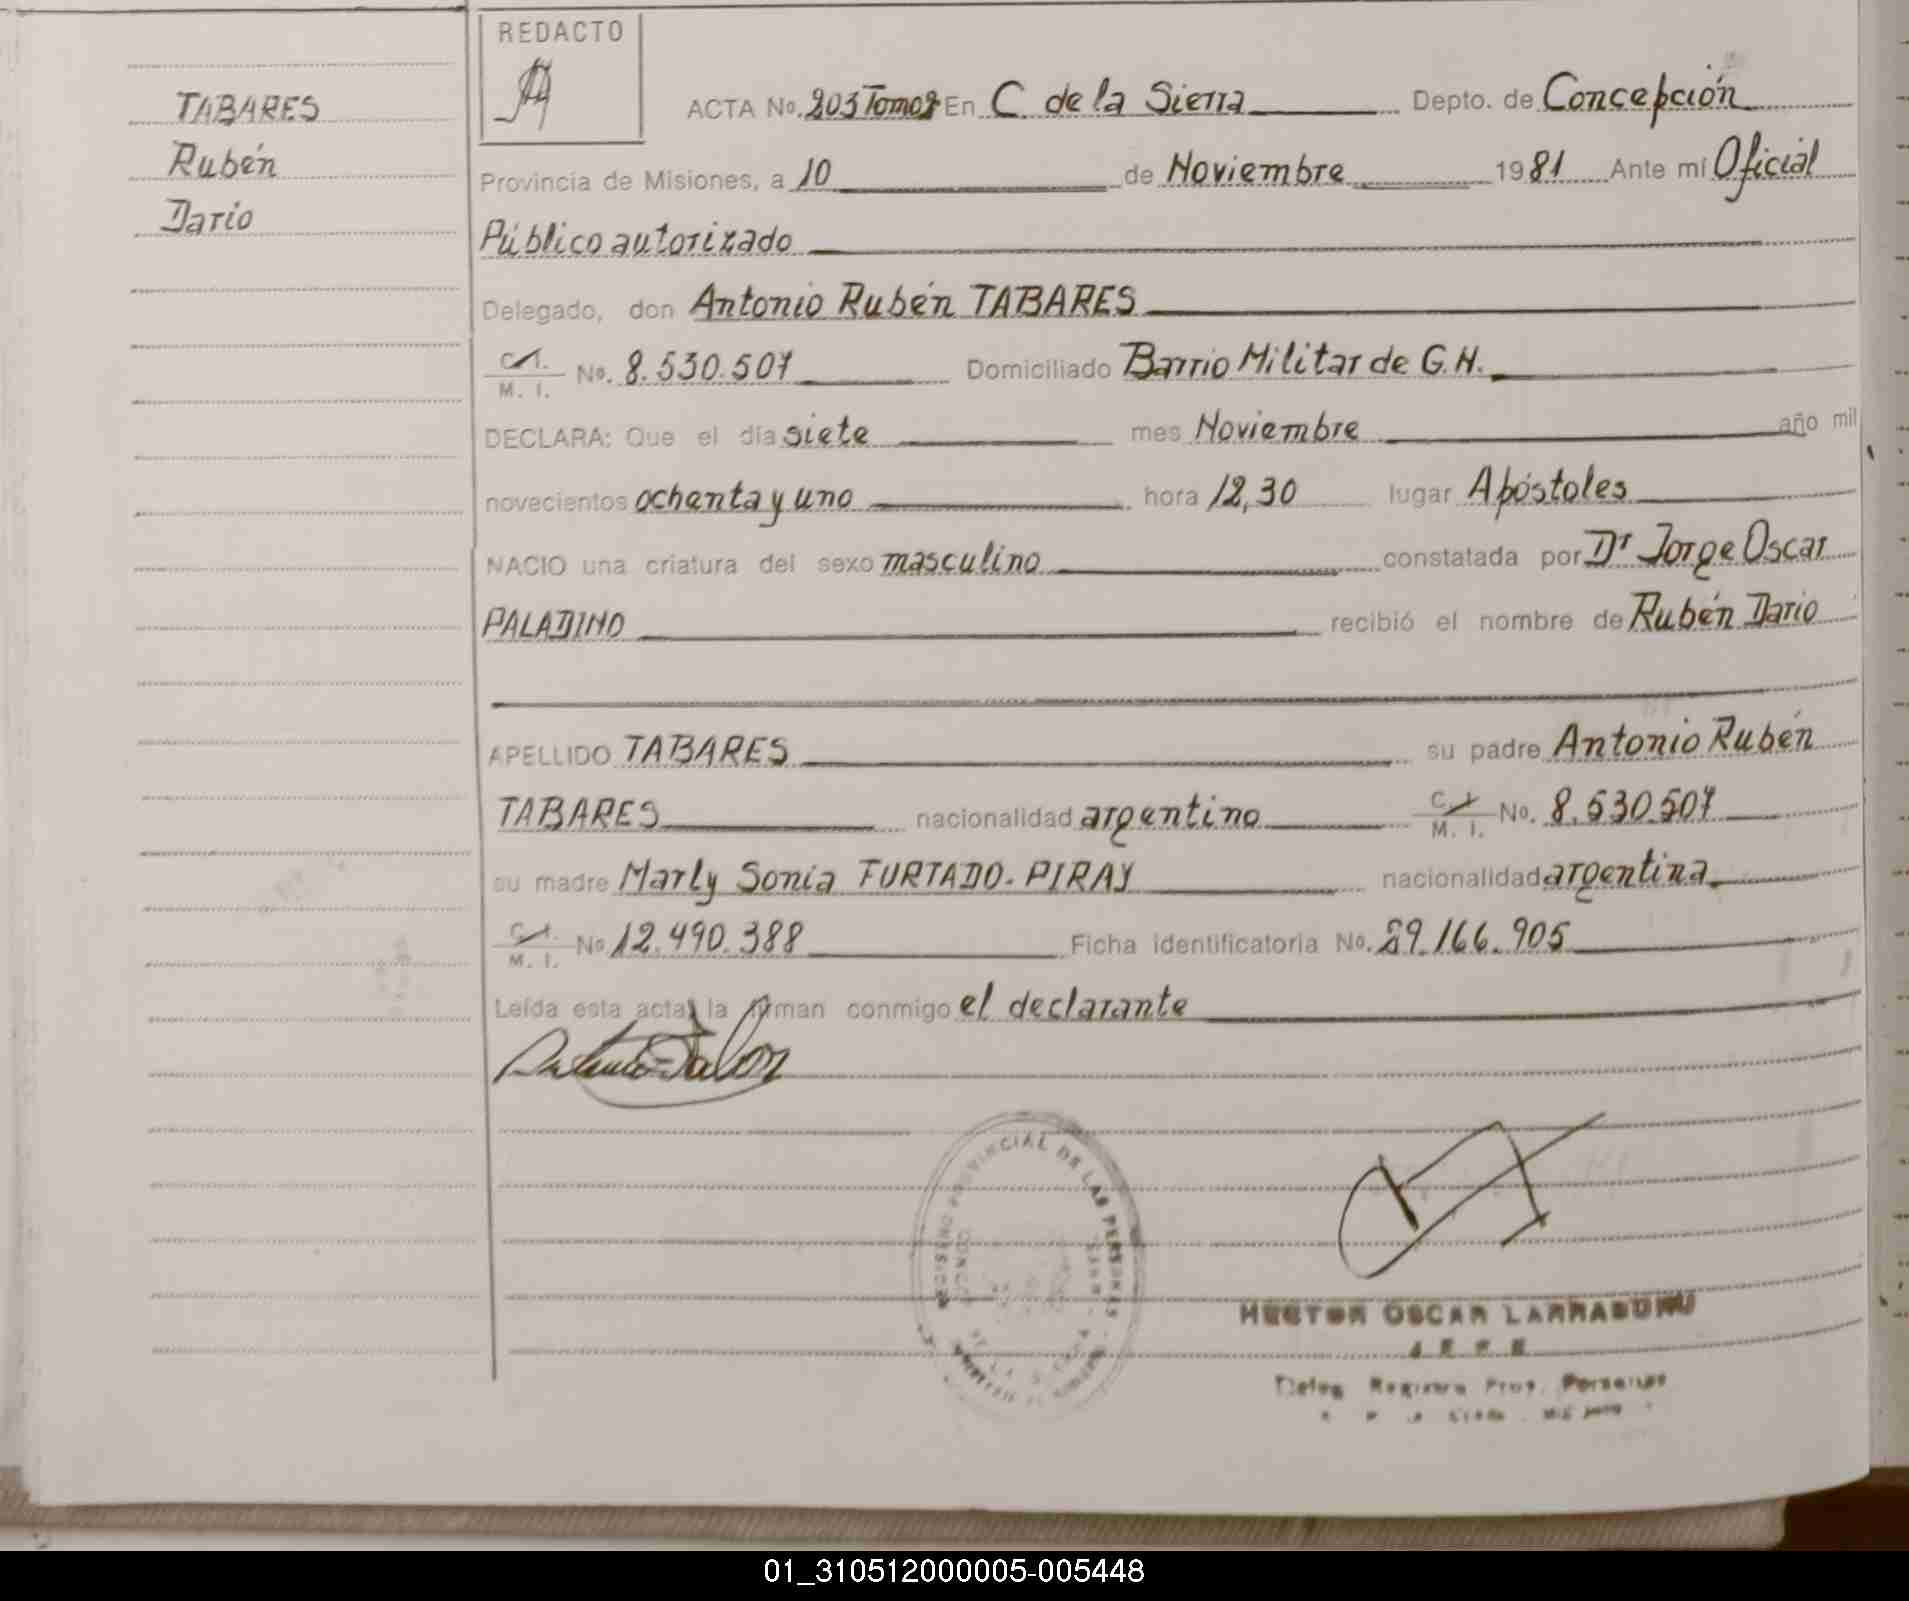 REDACTO
TABARES
Rubén
Dario
ACTA No. 203 Tomo 2 En C. de la Sierra Depto. de Concepción
Provincia de Misiones, a 10 de Noviembre 1981 Ante mí Oficial
Público autorizado
Delegado, don Antonio Rubén TABARES
C.I. M. I. No. 8.530.507 Domiciliado Barrio Militar de G.H.
DECLARA: Que el día siete mes Noviembre año mil
novecientos ochenta y uno hora 12,30 lugar Apóstoles
NACIO una criatura del sexo masculino constatada por Dr Jorge Oscar
PALADINO recibió el nombre de Rubén Dario
APELLIDO TABARES su padre Antonio Rubén
TABARES nacionalidad argentino C.I. M. I. No. 8.530.507
su madre Marly Sonia FURTADO-PIRAY nacionalidad argentina
C.I. M. I. No 12.490.388 Ficha identificatoria No. 29.166.905
Leída esta acta, la firman conmigo el declarante
REGISTRO PROVINCIAL DE LAS PERSONAS
HECTOR OSCAR LARRABURU
JEFE
Deleg. Registro Prov. Personas
01_310512000005-005448